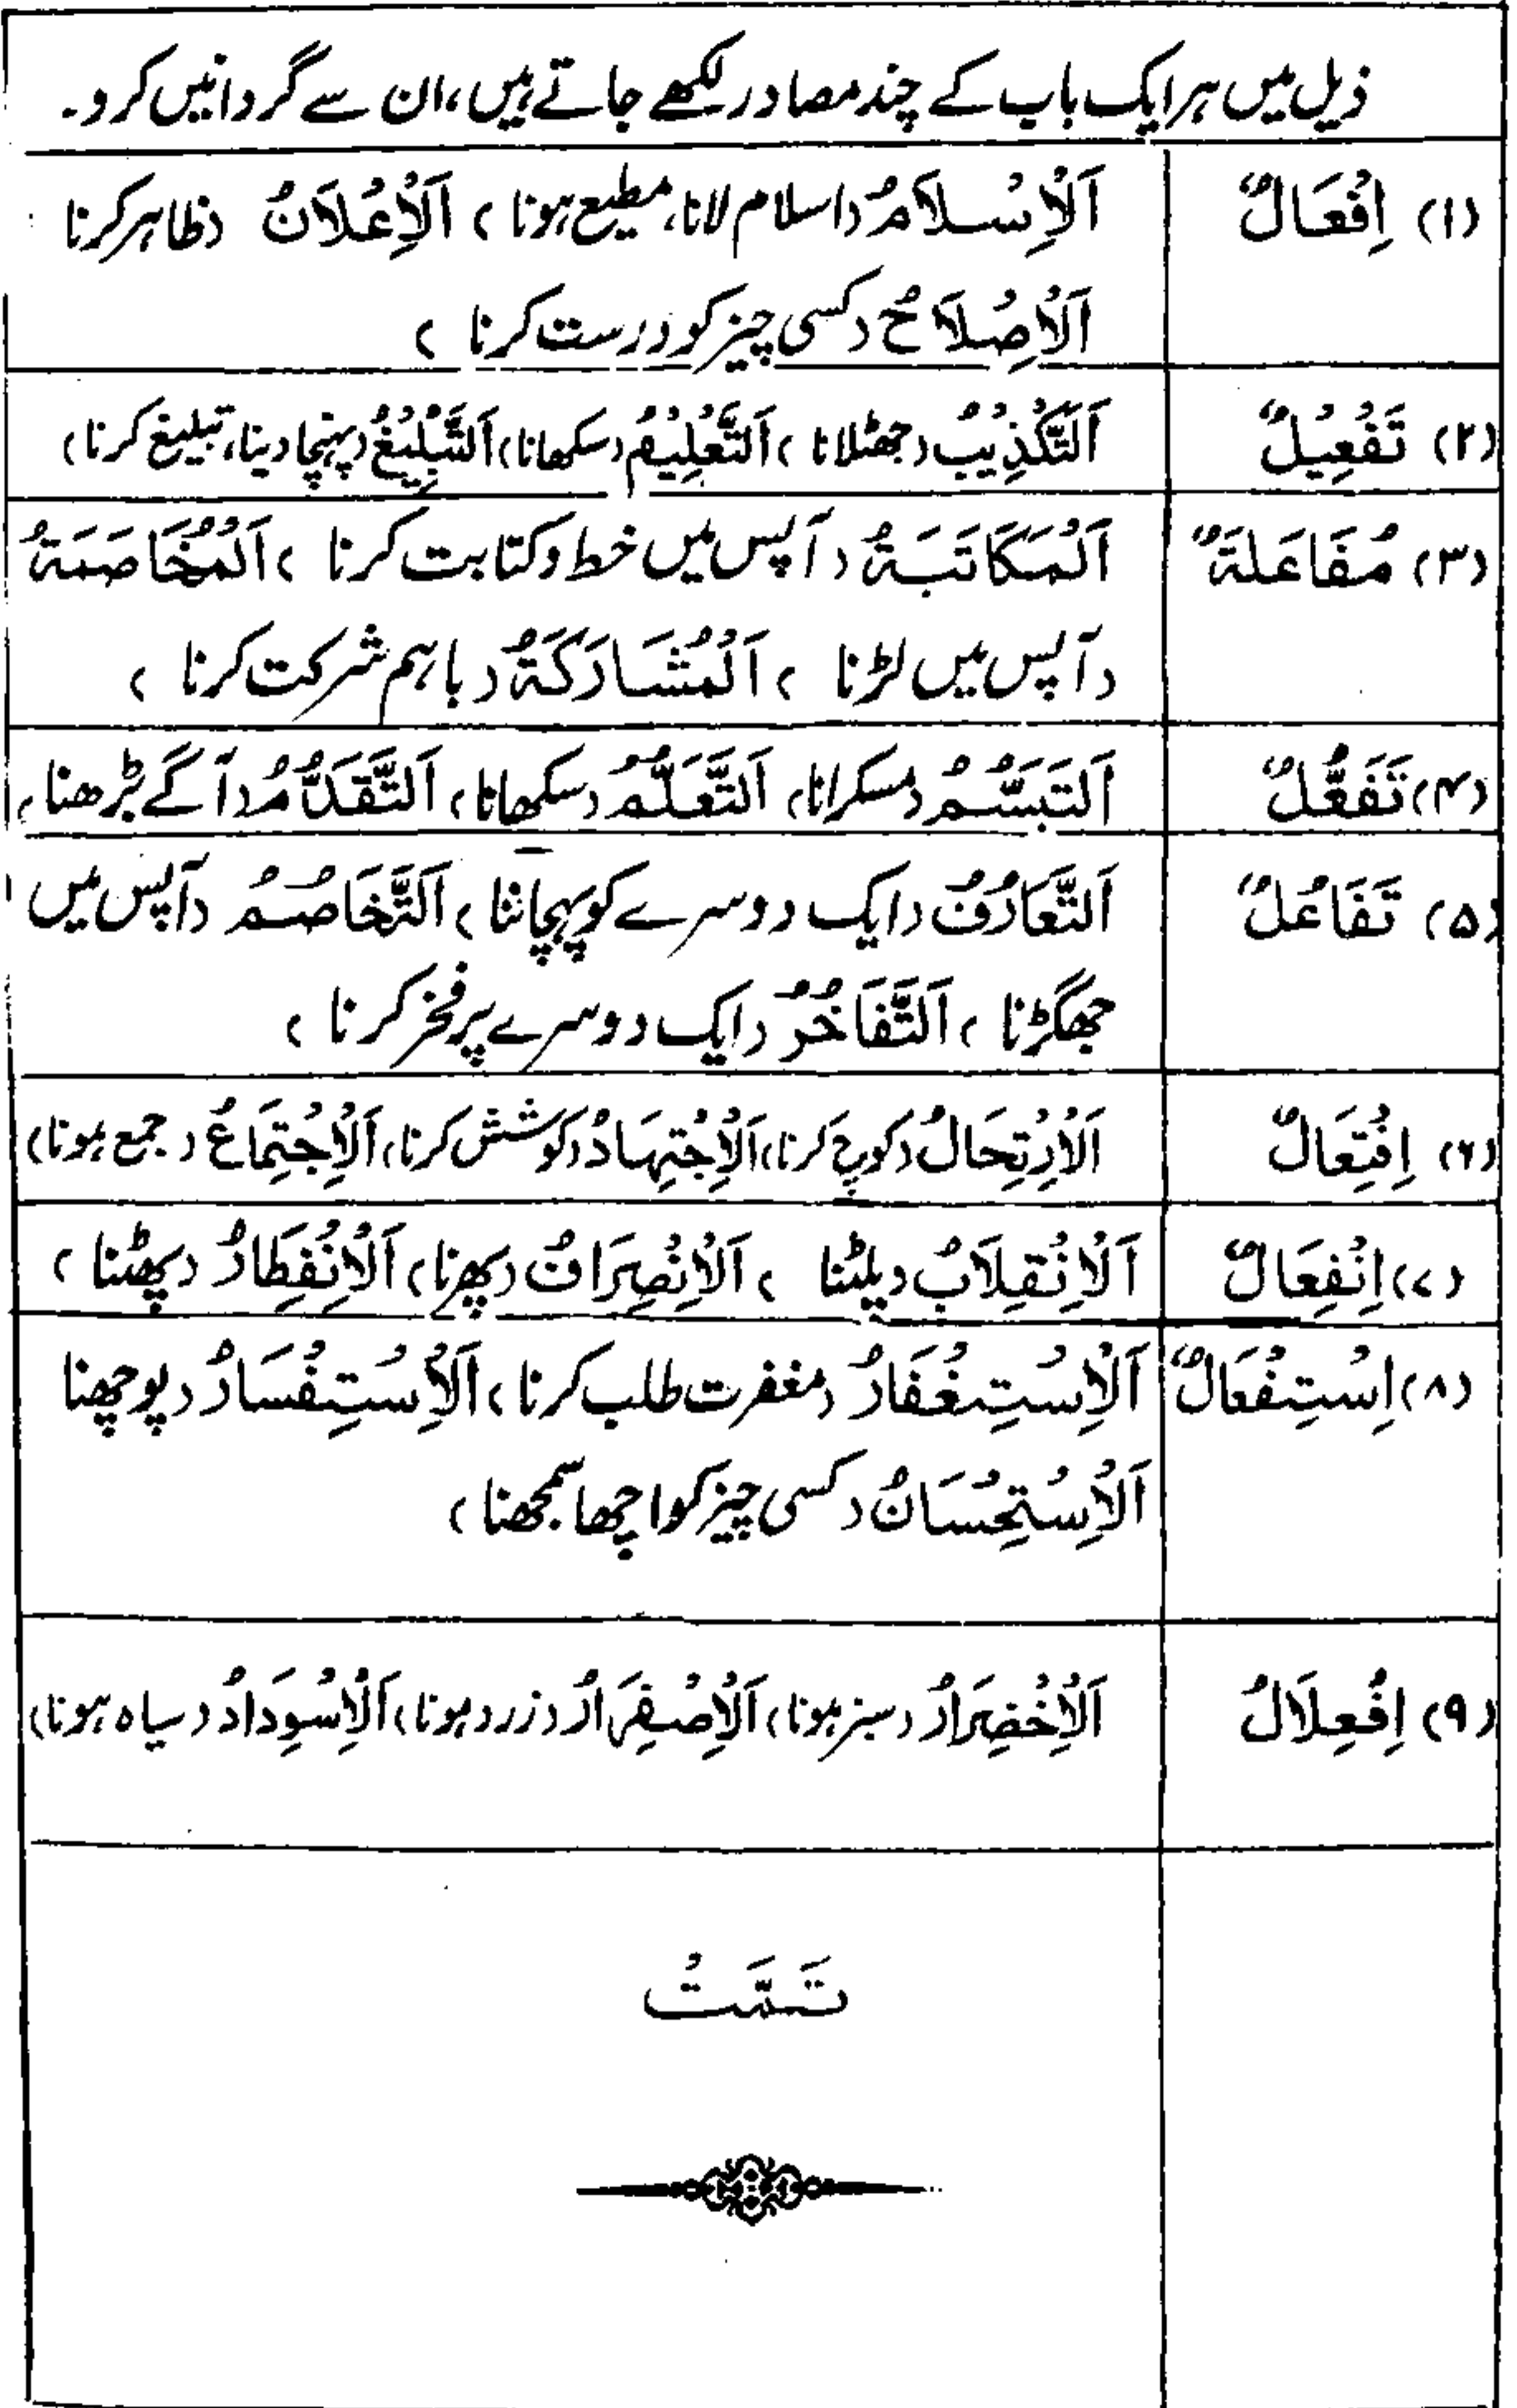 ذیل میں ہر ایک باب کے چند مصادر لکھے جاتے ہیں، ان سے گردانیں کرو۔
(۱) اِفْعَالٌ اَلْاِسْلَامُ (اسلام لانا، مطیع ہونا) اَلْاِعْلَانُ (ظاہر کرنا
اَلْاِصْلَاحُ (کسی چیز کو درست کرنا)
(۲) تَفْعِیْلٌ اَلتَّکْذِیْبُ (جھٹلانا) اَلتَّعْلِیْمُ (سکھانا) اَلتَّبْلِیْغُ (پہنچا دینا، تبلیغ کرنا)
(۳) مُفَاعَلَةٌ اَلْمُکَاتَبَةُ (آپس میں خط و کتابت کرنا) اَلْمُخَاصَمَةُ
(آپس میں لڑنا) اَلْمُشَارَکَةُ (باہم شرکت کرنا)
(۴) تَفَعُّلٌ اَلتَبَسُّمُ (مسکرانا) اَلتَّعَلُّمُ (سکھانا) اَلتَّقَدُّمُ (آگے بڑھنا)
(۵) تَفَاعُلٌ اَلتَّعَارُفُ (ایک دوسرے کو پہچاننا) اَلتَّخَاصُمُ (آپس میں
جھگڑنا) اَلتَّفَاخُرُ (ایک دوسرے پر فخر کرنا)
(۶) اِفْتِعَالٌ اَلْاِرْتِحَالُ (کوچ کرنا) اَلْاِجْتِهَادُ (کوشش کرنا) اَلْاِجْتِمَاعُ (جمع ہونا)
(۷) اِنْفِعَالٌ اَلْاِنْقِلَابُ (پلٹنا) اَلْاِنْصِرَافُ (پھرنا) اَلْاِنْفِطَارُ (پھٹنا)
(۸) اِسْتِفْعَالٌ اَلْاِسْتِغْفَارُ (مغفرت طلب کرنا) اَلْاِسْتِفْسَارُ (پوچھنا
اَلْاِسْتِحْسَانُ (کسی چیز کو اچھا سمجھنا)
(۹) اِفْعِلَالُ اَلْاِخْضِرَارُ (سبز ہونا) اَلْاِصْفِرَارُ (زرد ہونا) اَلْاِسْوِدَادُ (سیاہ ہونا)
تَمَّتْ